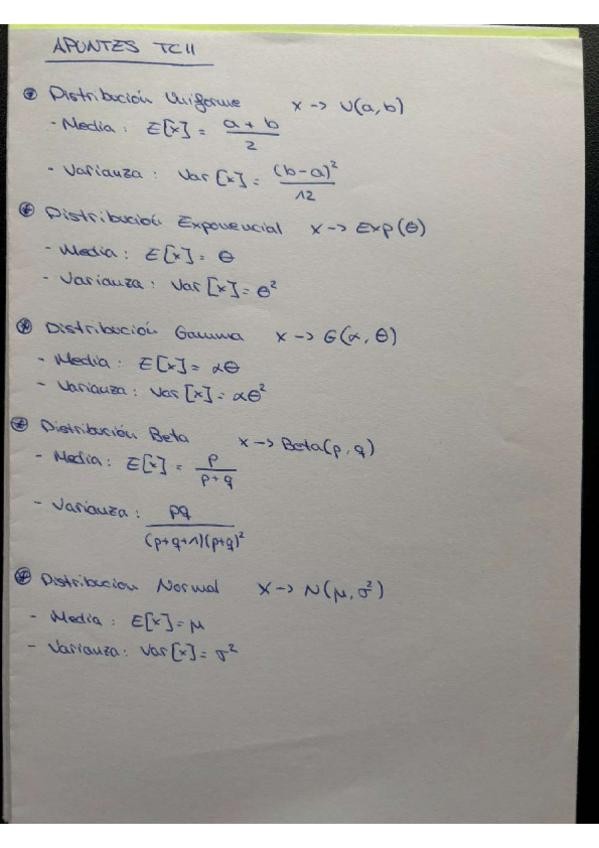 APUNTES TC11
⊛ Distribución Uniforme X → U(a,b)
- Media : E[x] = (a + b)/2
- Varianza : Var[x] = (b-a)²/12
⊛ Distribución Exponencial X → Exp(θ)
- Media : E[x] = θ
- Varianza : Var[x] = θ²
⊛ Distribución Gamma X → G(α, θ)
- Media : E[x] = αθ
- Varianza : Var[x] = αθ²
⊛ Distribución Beta X → Beta(p, q)
- Media : E[x] = p/(p+q)
- Varianza : pq/((p+q+1)(p+q)²)
⊛ Distribucion Normal X → N(μ, σ²)
- Media : E[x] = μ
- Varianza : Var[x] = σ²